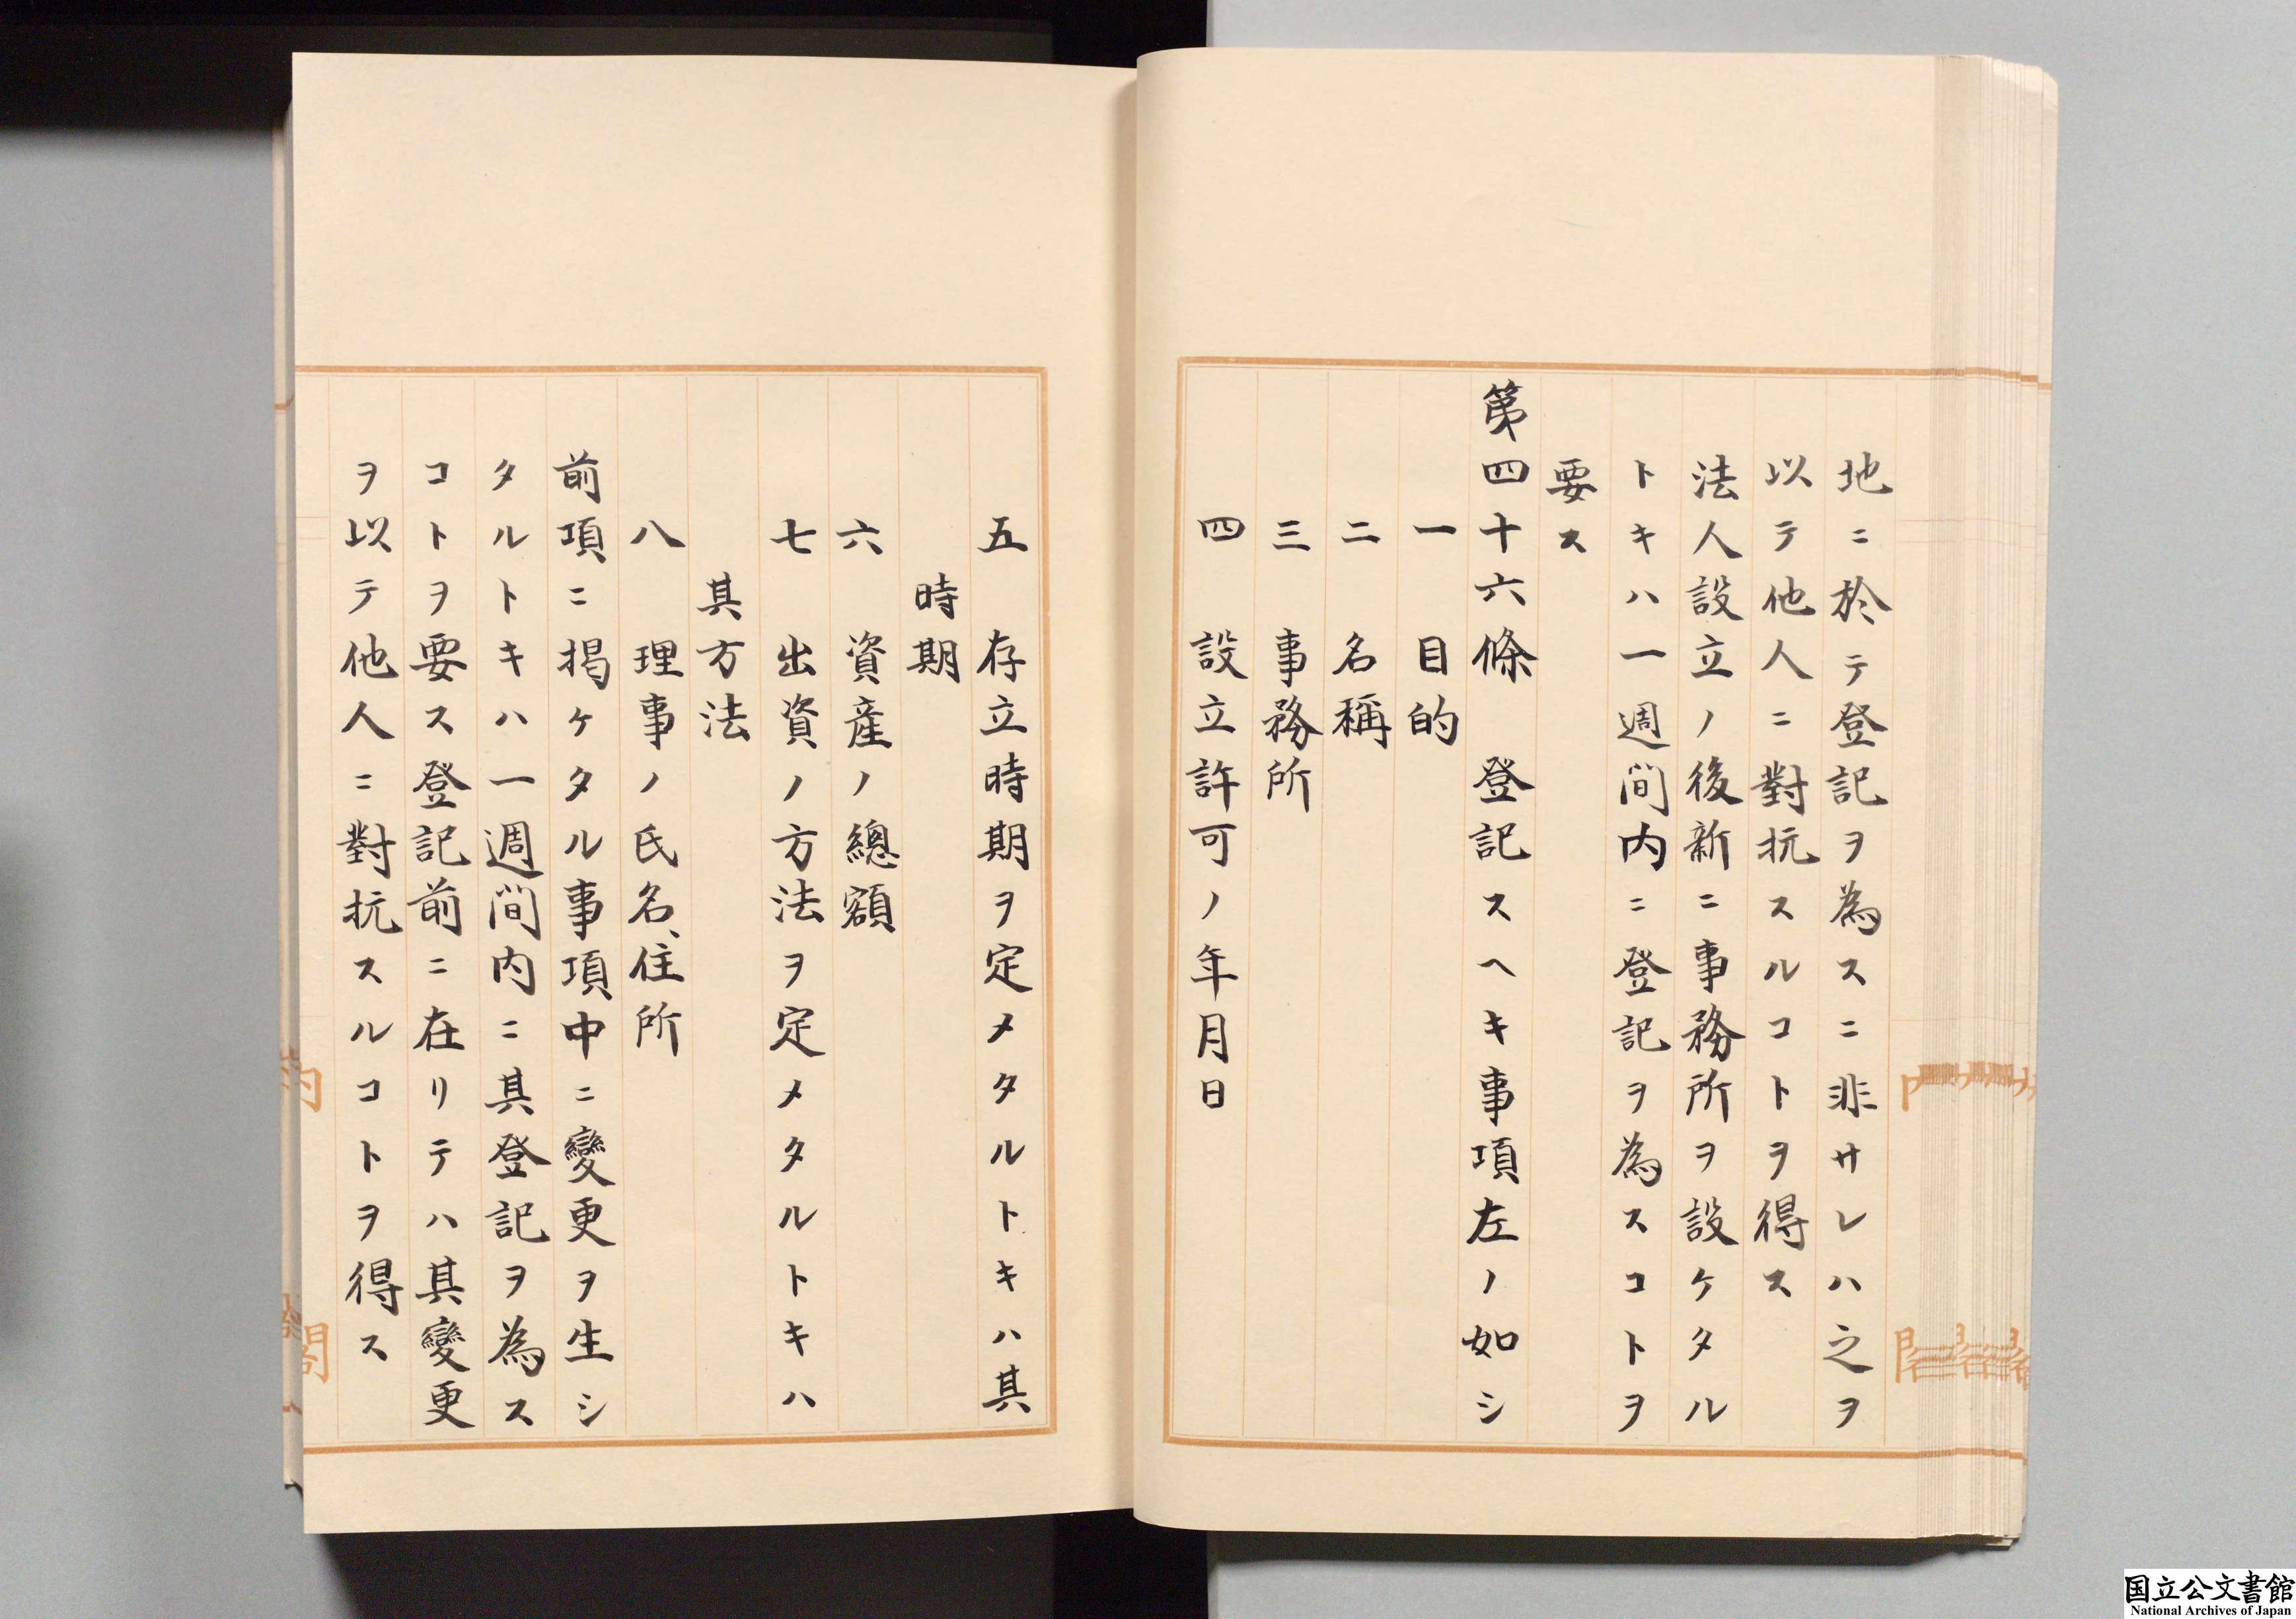 地ニ於テ登記ヲ為スニ非サレハ之ヲ
以テ他人ニ對抗スルコトヲ得ス
法人設立ノ後新ニ事務所ヲ設ケタル
トキハ一週間内ニ登記ヲ為スコトヲ
要ス
第四十六條　登記スヘキ事項左ノ如シ
一　目的
二　名稱
三　事務所
四　設立許可ノ年月日
五　存立時期ヲ定メタルトキハ其
時期
六　資産ノ總額
七　出資ノ方法ヲ定メタルトキハ
其方法
八　理事ノ氏名、住所
前項ニ掲ケタル事項中ニ變更ヲ生シ
タルトキハ一週間内ニ其登記ヲ為ス
コトヲ要ス登記前ニ在リテハ其變更
ヲ以テ他人ニ對抗スルコトヲ得ス
国立公文書館
National Archives of Japan